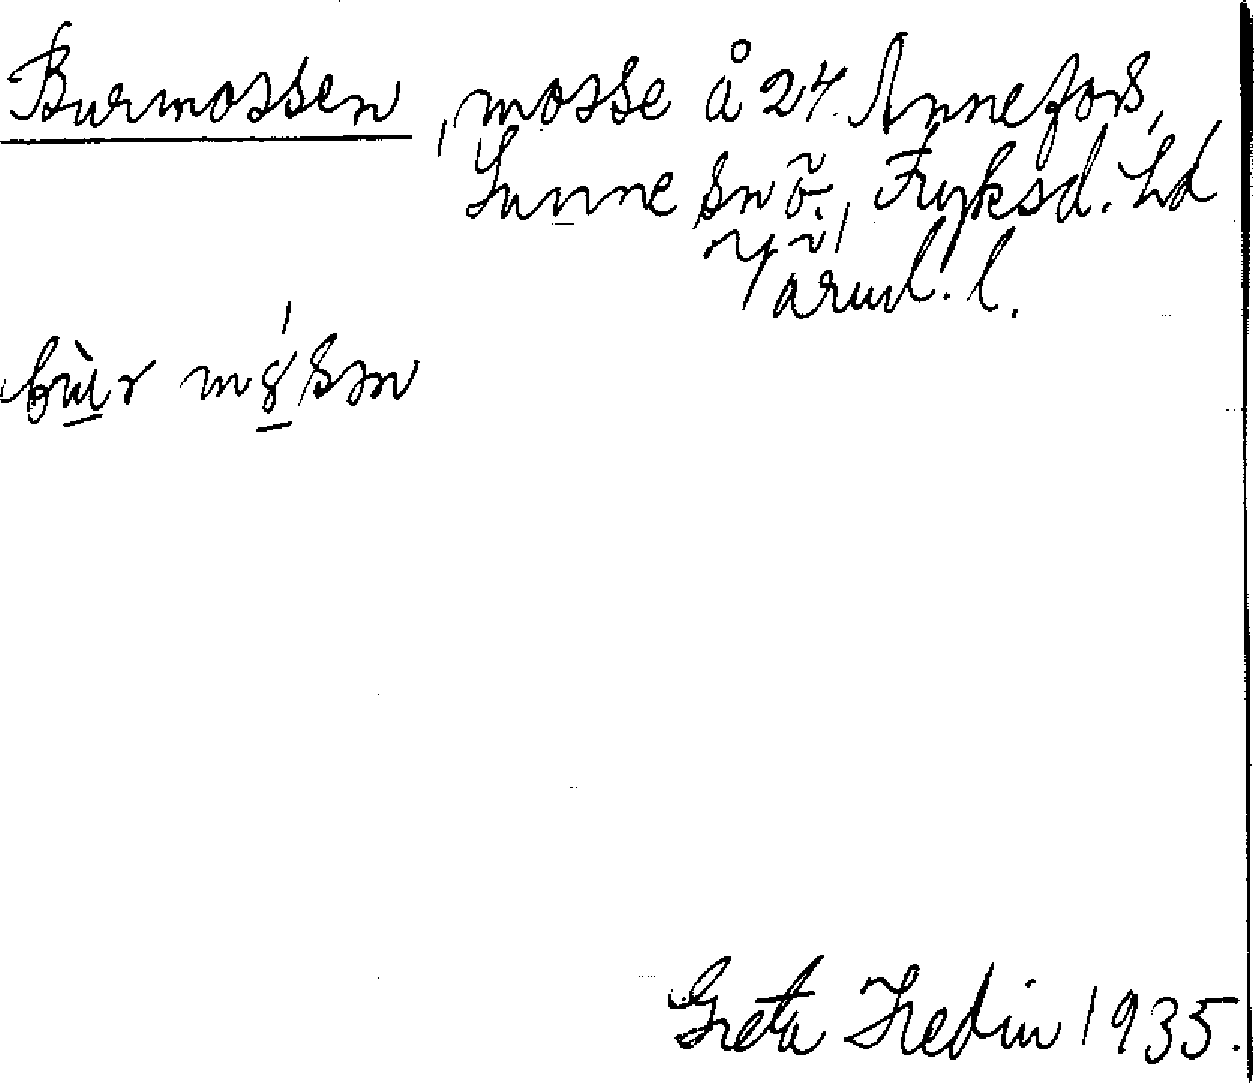 Burmossen, mosse å 24. Annefors,
Sunne sn ö., Fryksd. hd
Värml. l.
bùr mósen
Greta Hedin 1935.